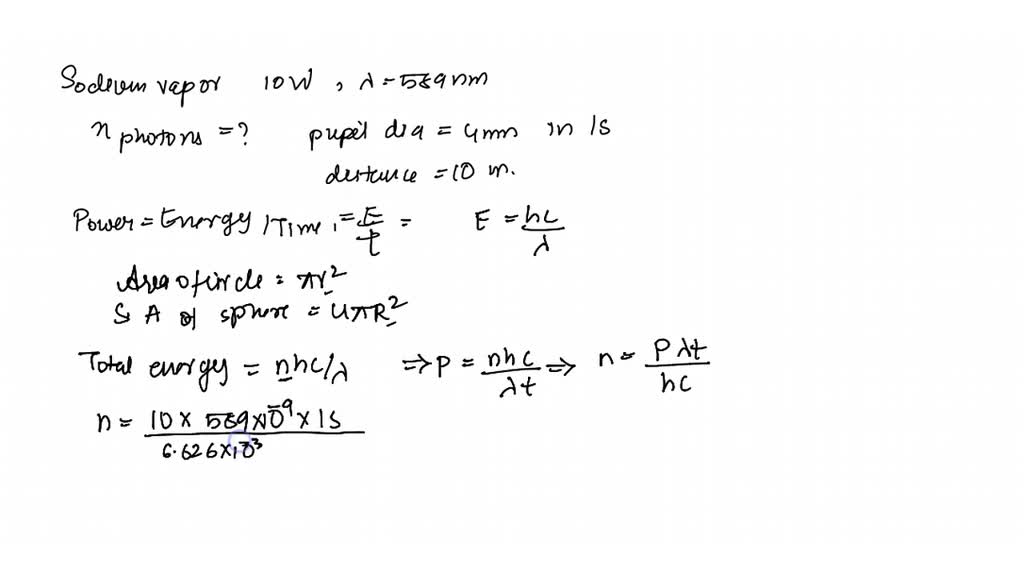 Sodium vapor 10W , λ = 589 nm
n photons = ? pupil dia = 4mm in 1s
distance = 10 m.
Power = Energy / Time , = E/t = E = hc/λ
Area of circle = πr²
S A of sphere = 4πR²
Total energy = nhc/λ ⇒ P = nhc/λt ⇒ n = Pλt/hc
n = 10 × 589×10⁻⁹ × 1s
6.626×10⁻³